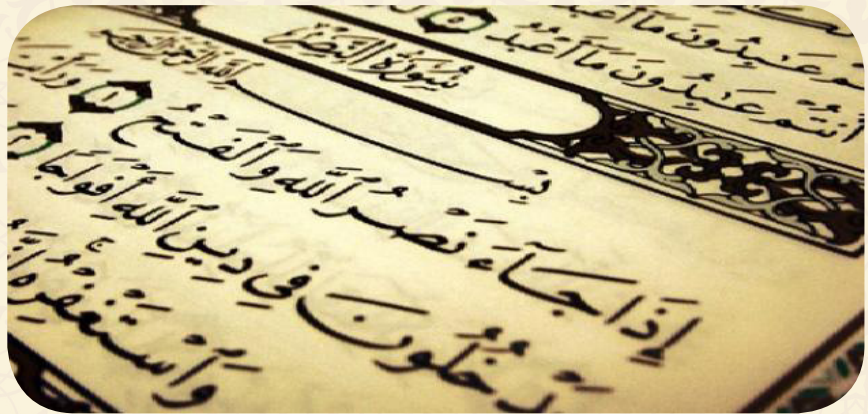 عَـٰبِدُونَ مَآ أَعْبُدُ
أَنتُمْ عَـٰبِدُونَ مَآ أَعْبُدُ ٥
سُورَةُ النَّصْرِ
بِسْمِ ٱللَّهِ ٱلرَّحْمَـٰنِ ٱلرَّحِيمِ
إِذَا جَآءَ نَصْرُ ٱللَّهِ وَٱلْفَتْحُ ١ وَرَأَيْتَ
يَدْخُلُونَ فِى دِينِ ٱللَّهِ أَفْوَاجًا ٢
وَٱسْتَغْفِرْهُ إِنَّهُ